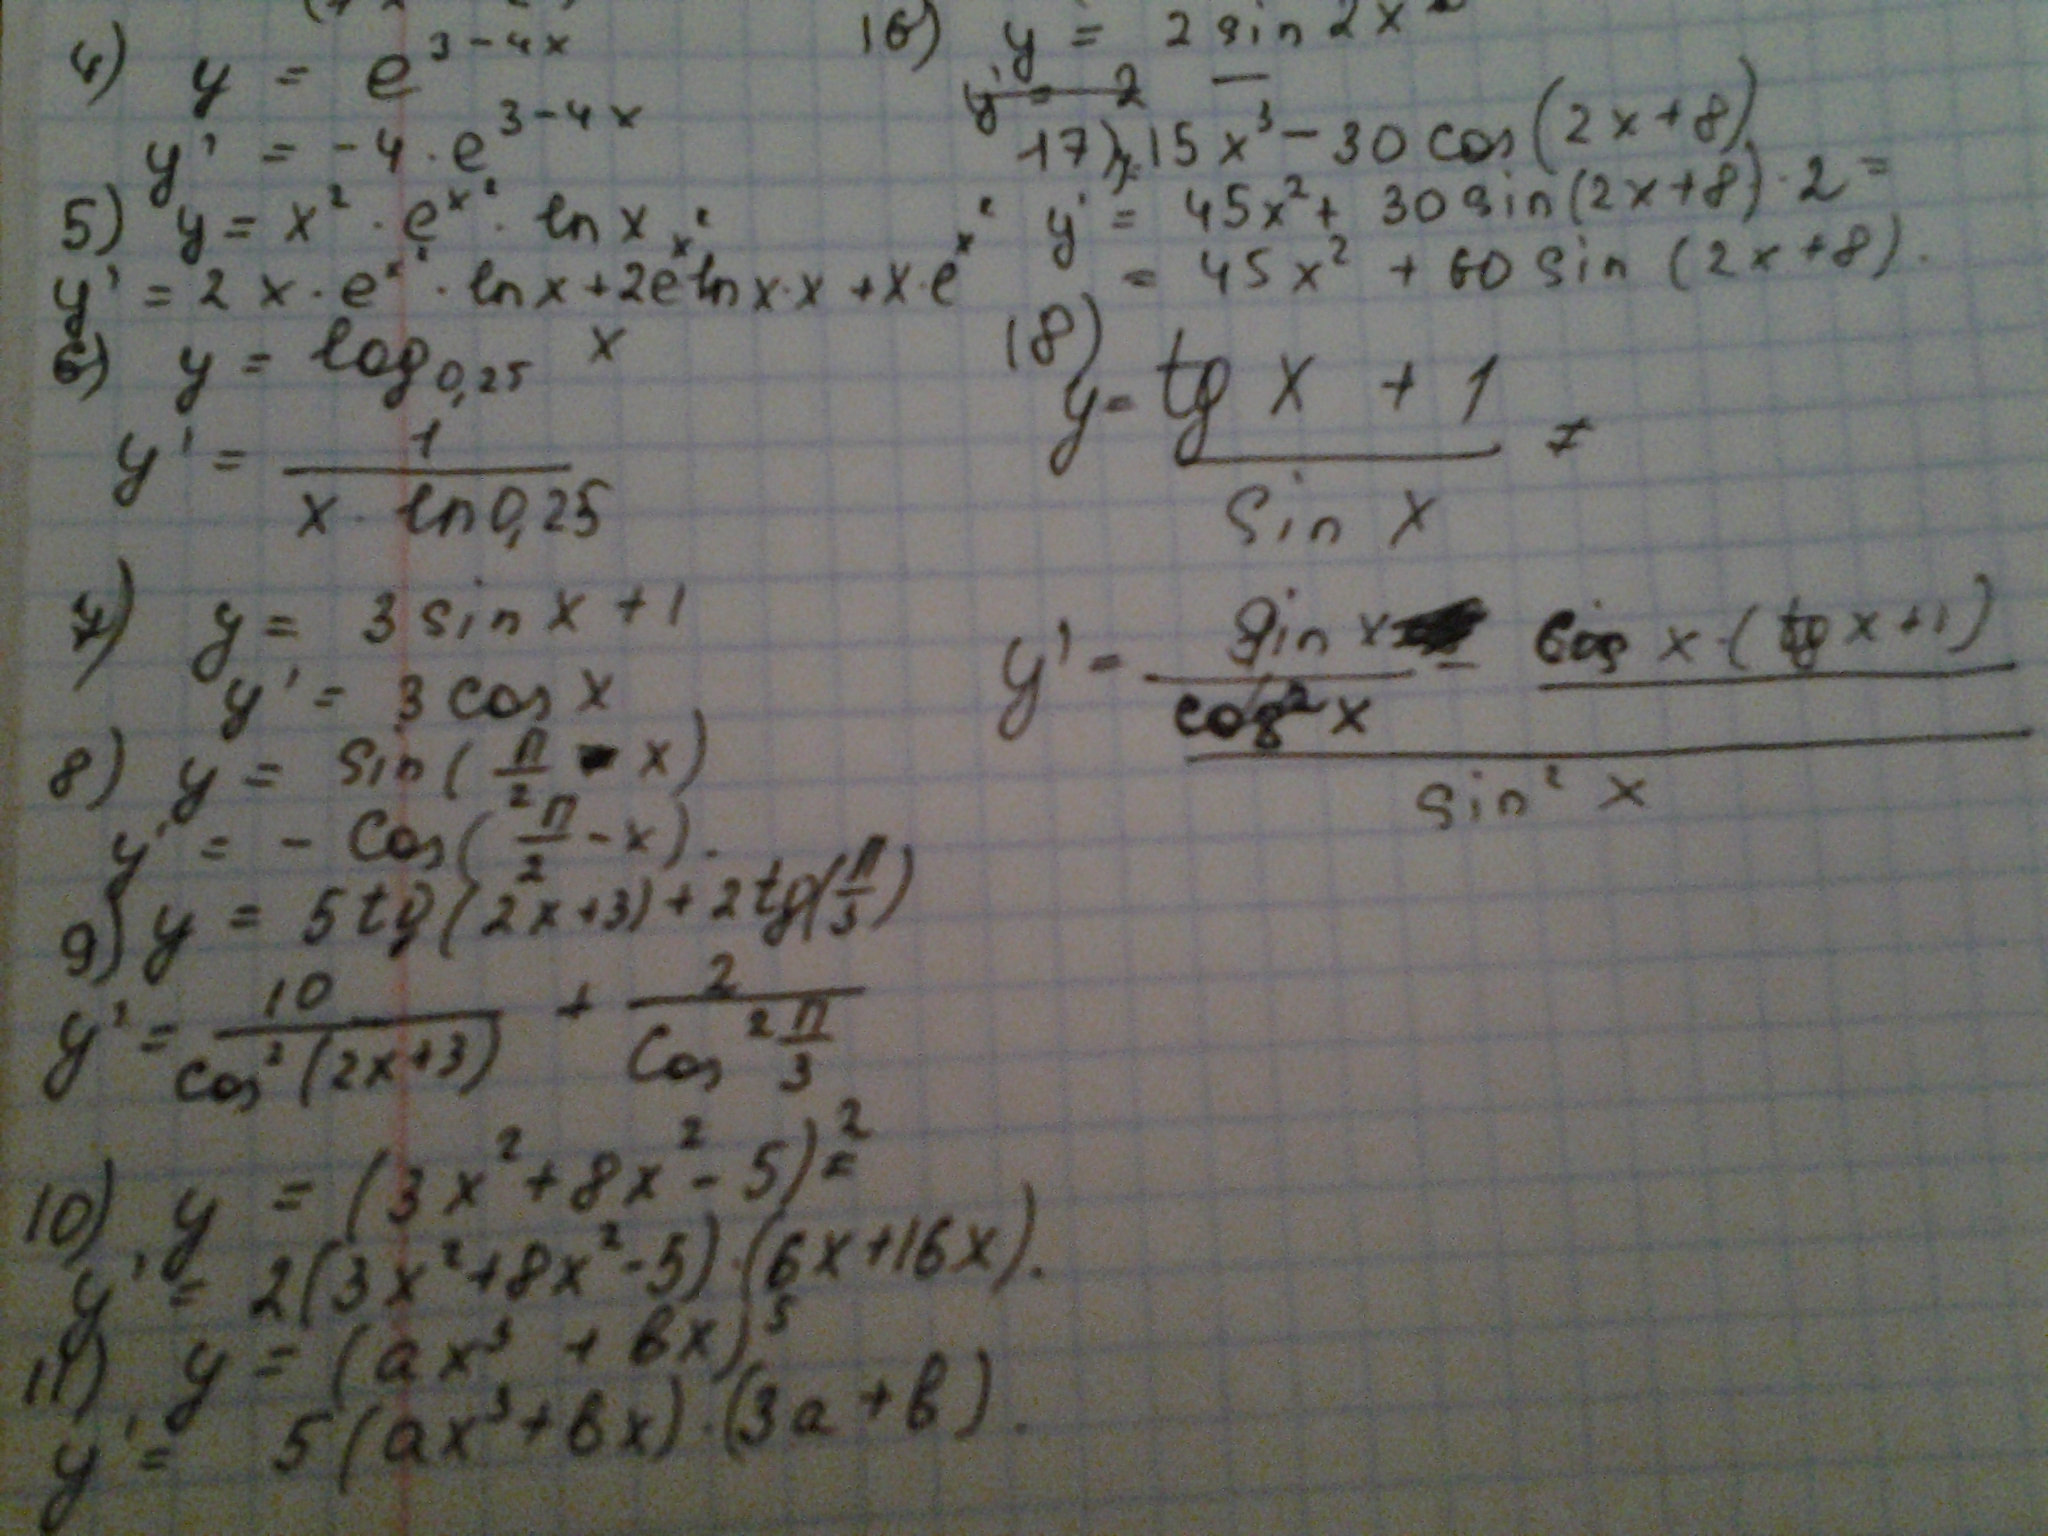 4) y = e^{3-4x}
y' = -4 · e^{3-4x}
5) y = x² · e^{x²} · ln x
y' = 2x · e^{x²} · ln x + 2e^{x²} ln x · x + x · e^{x²}
6) y = log_{0,25} x
y' = 1 / (x · ln 0,25)
7) y = 3 sin x + 1
y' = 3 cos x
8) y = sin(π/2 - x)
y' = - cos(π/2 - x).
9) y = 5 tg(2x+3) + 2 tg(π/3)
y' = 10 / cos²(2x+3) + 2 / cos² π/3
10) y = (3x² + 8x² - 5)² =
y' = 2(3x² + 8x² - 5) · (6x + 16x).
11) y = (ax³ + bx)⁵
y' = 5(ax³ + bx) · (3a + b).
16) y = 2 sin 2x
y' = 2
17) y = 15x³ - 30 cos(2x+8)
y' = 45x² + 30 sin(2x+8) · 2 =
= 45x² + 60 sin(2x+8).
18)
y = (tg x + 1) / sin x =
y' = (sin x / cos² x - cos x · (tg x + 1)) / sin² x